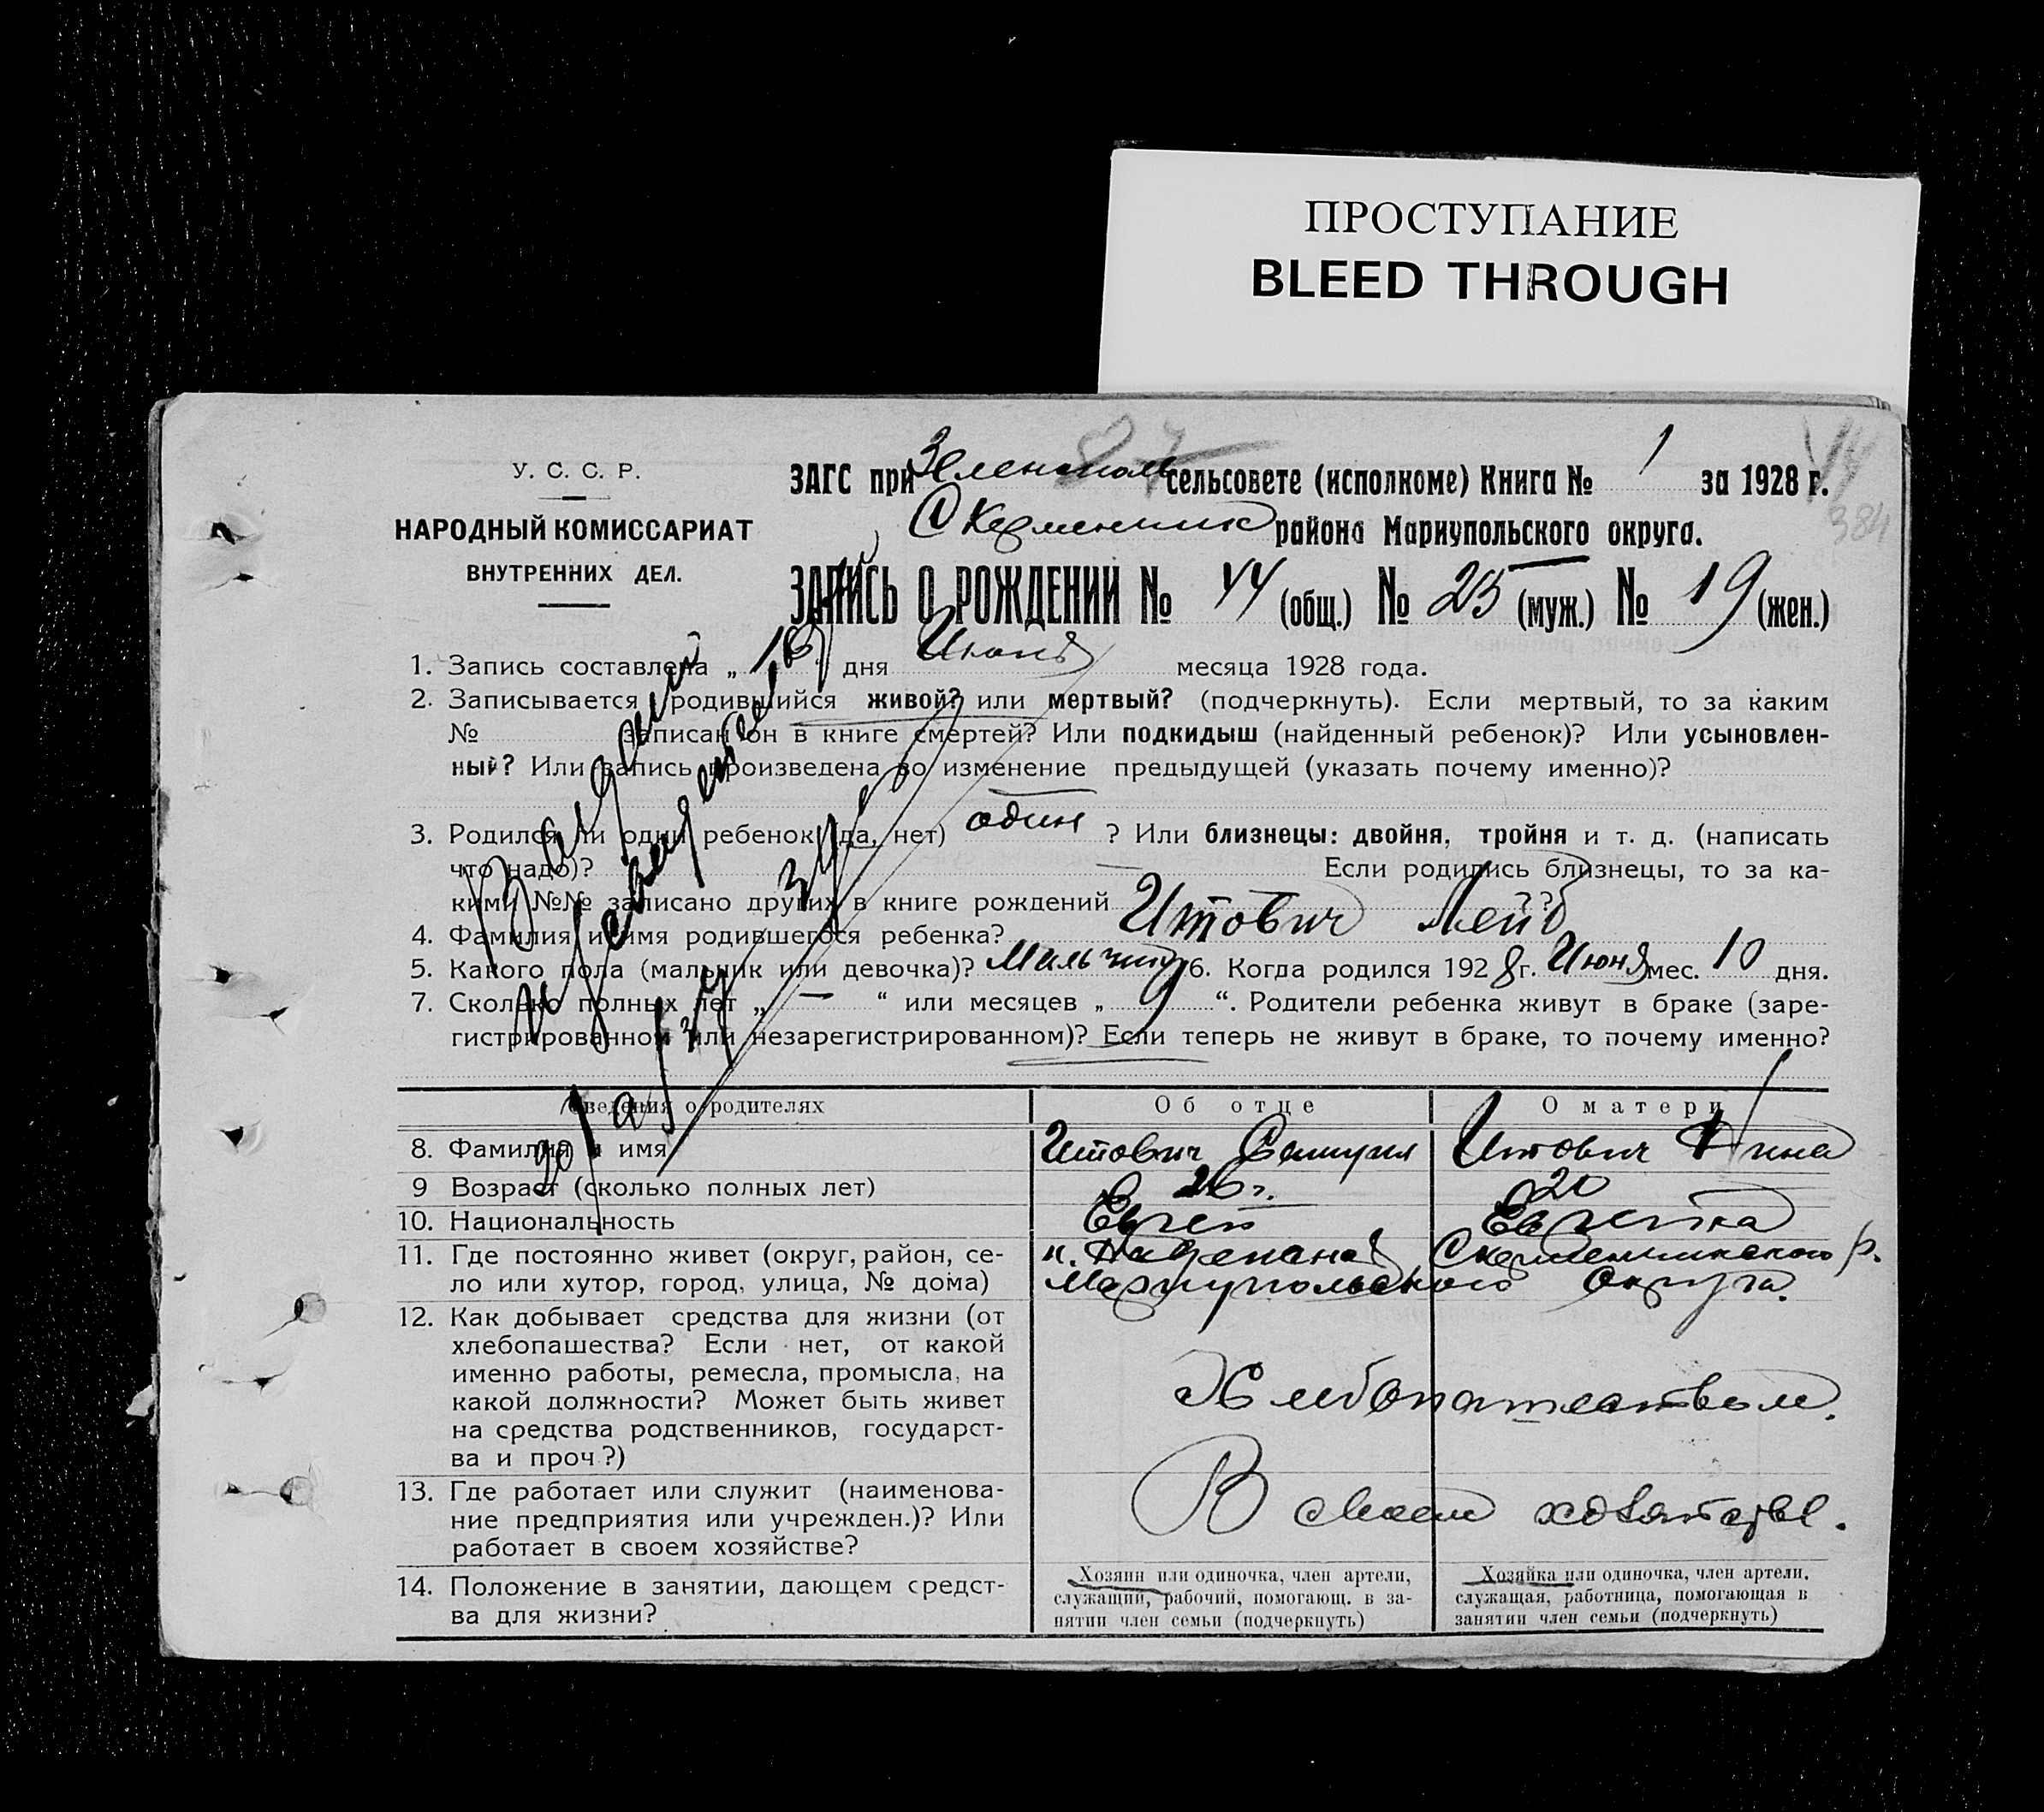 ПРОСТУПАНИЕ
BLEED THROUGH
У. С. С. Р.
НАРОДНЫЙ КОМИССАРИАТ
ВНУТРЕННИХ ДЕЛ.
ЗАГС при Зеленополь сельсовете (исполкоме) Книга № 1 за 1928 г.
384
С Керменчик района Мариупольского округа.
ЗАПИСЬ О РОЖДЕНИИ № 44 (общ.) № 25 (муж.) № 19 (жен.)
1. Запись составлена „ дня Июня месяца 1928 года.
2. Записывается родившийся живой? или мертвый? (подчеркнуть). Если мертвый, то за каким
№ записан он в книге смертей? Или подкидыш (найденный ребенок)? Или усыновлен-
ный? Или запись произведена во изменение предыдущей (указать почему именно)?
3. Родился ли один ребенок (да, нет) один ? Или близнецы: двойня, тройня и т. д. (написать
что надо)? Если родились близнецы, то за ка-
кими №№ записано других в книге рождений ?
4. Фамилия и имя родившегося ребенка? Итович Лейб
5. Какого пола (мальчик или девочка)? Мальчик 6. Когда родился 1928 г. Июня мес. 10 дня.
7. Сколько полных лет „ — “ или месяцев „ “. Родители ребенка живут в браке (заре-
гистрированном или незарегистрированном)? Если теперь не живут в браке, то почему именно?
Сведения о родителях Об отце О матери
8. Фамилия и имя Итович Самуил Итович Нина
9 Возраст (сколько полных лет) 26 г. 20
10. Национальность Еврей Еврейка
11. Где постоянно живет (округ, район, се- Скерменчикского р.
ло или хутор, город, улица, № дома) Мариупольского округа.
12. Как добывает средства для жизни (от
хлебопашества? Если нет, от какой
именно работы, ремесла, промысла, на
какой должности? Может быть живет Хлебопашеством.
на средства родственников, государст-
ва и проч.?)
13. Где работает или служит (наименова-
ние предприятия или учрежден.)? Или В своем хозяйстве.
работает в своем хозяйстве?
14. Положение в занятии, дающем средст-
ва для жизни?
Хозяин или одиночка, член артели,
служащий, рабочий, помогающ. в за-
нятии член семьи (подчеркнуть)
Хозяйка или одиночка, член артели,
служащая, работница, помогающая в
занятии член семьи (подчеркнуть)